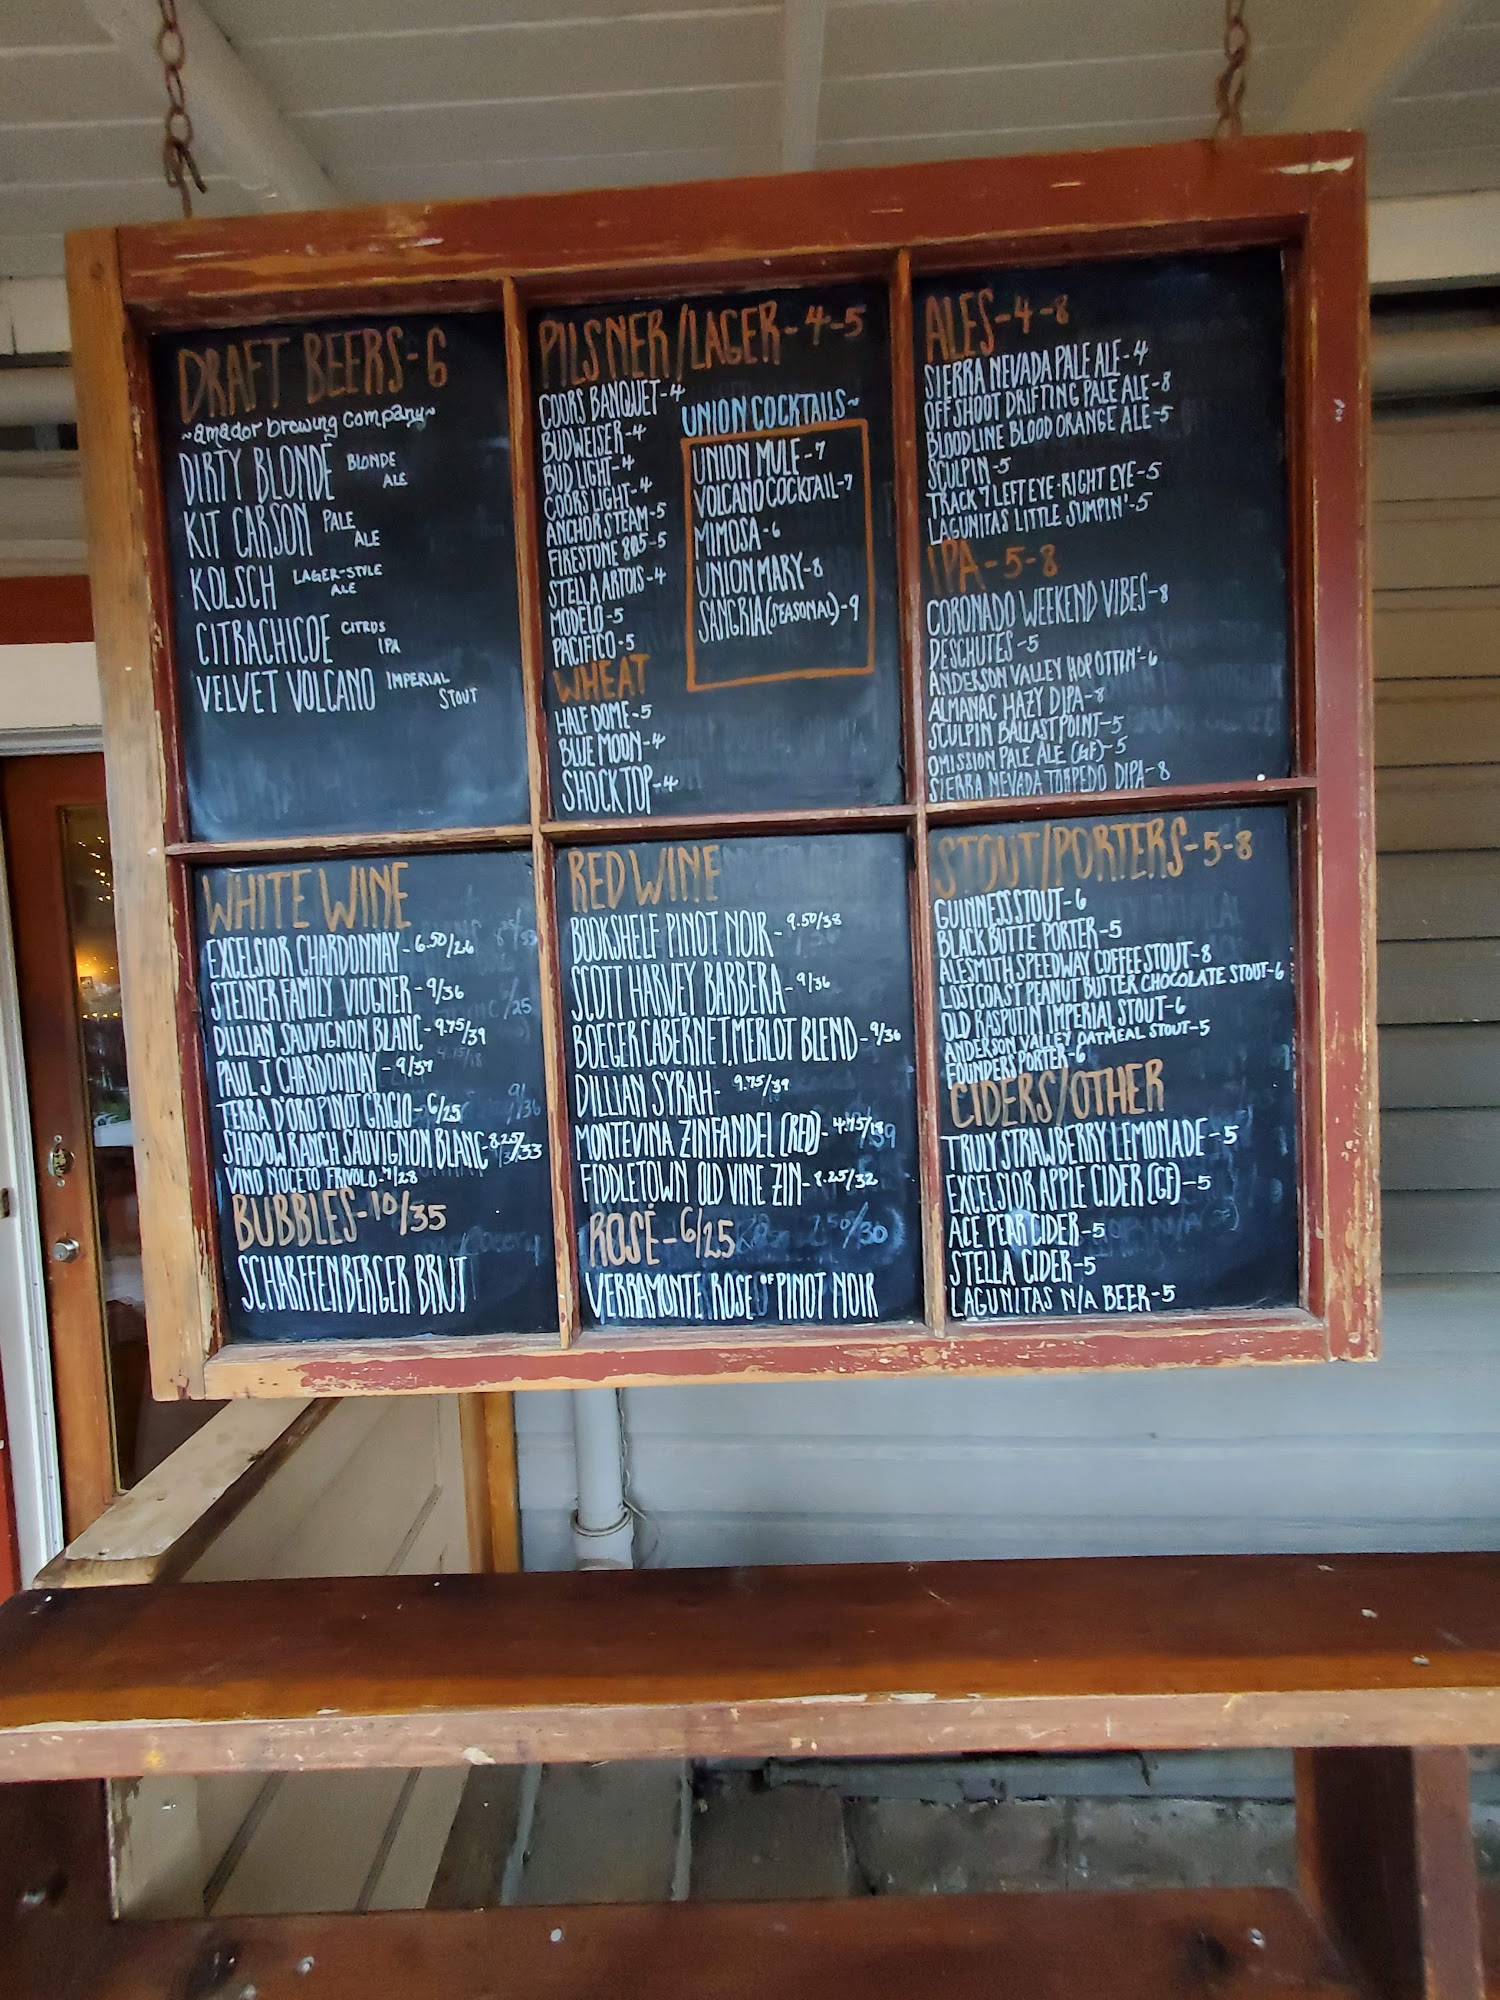 DRAFT BEERS-6
~amador brewing company~
DIRTY BLONDE BLONDE ALE
KIT CARSON PALE ALE
KOLSCH LAGER-STYLE ALE
CITRACHICOE CITRUS IPA
VELVET VOLCANO IMPERIAL STOUT
PILSNER/LAGER-4-5
COORS BANQUET-4
BUDWEISER-4
BUD LIGHT-4
COORS LIGHT-4
ANCHOR STEAM-5
FIRESTONE 805-5
STELLA ARTOIS-4
MODELO-5
PACIFICO-5
WHEAT
HALF DOME-5
BLUE MOON-4
SHOCK TOP-4
UNION COCKTAILS~
UNION MULE-7
VOLCANO COCKTAIL-7
MIMOSA-6
UNION MARY-8
SANGRIA (SEASONAL)-9
ALES-4-8
SIERRA NEVADA PALE ALE-4
OFFSHOOT DRIFTING PALE ALE-8
BLOODLINE BLOOD ORANGE ALE-5
SCULPIN-5
TRACK 7 LEFT EYE-RIGHT EYE-5
LAGUNITAS LITTLE SUMPIN'-5
IPA-5-8
CORONADO WEEKEND VIBES-8
DESCHUTES-5
ANDERSON VALLEY HOP OTTIN'-6
ALMANAC HAZY DIPA-8
SCULPIN BALLAST POINT-5
OMISSION PALE ALE (GF)-5
SIERRA NEVADA TORPEDO DIPA-8
WHITE WINE
EXCELSIOR CHARDONNAY-6.50/26
STEINER FAMILY VIOGNER-9/36
DILLIAN SAUVIGNON BLANC-9.75/39
PAUL J CHARDONNAY-9/37
TERRA D'ORO PINOT GRIGIO-6/25
SHADOW RANCH SAUVIGNON BLANC-8.25/33
VINO NOCETO FRIVOLO-7/28
BUBBLES-10/35
SCHARFFENBERGER BRUT
RED WINE
BOOKSHELF PINOT NOIR-9.50/38
SCOTT HARVEY BARBERA-9/36
BOEGER CABERNET, MERLOT BLEND-9/36
DILLIAN SYRAH-9.75/39
MONTEVINA ZINFANDEL (RED)-4.75/18
FIDDLETOWN OLD VINE ZIN-8.25/32
ROSÉ-6/25
VERRAMONTE ROSE OF PINOT NOIR
STOUT/PORTERS-5-8
GUINNESS STOUT-6
BLACK BUTTE PORTER-5
ALESMITH SPEEDWAY COFFEE STOUT-8
LOST COAST PEANUT BUTTER CHOCOLATE STOUT-6
OLD RASPUTIN IMPERIAL STOUT-6
ANDERSON VALLEY OATMEAL STOUT-5
FOUNDERS PORTER-6
CIDERS/OTHER
TRULY STRAWBERRY LEMONADE-5
EXCELSIOR APPLE CIDER (GF)-5
ACE PEAR CIDER-5
STELLA CIDER-5
LAGUNITAS N/A BEER-5